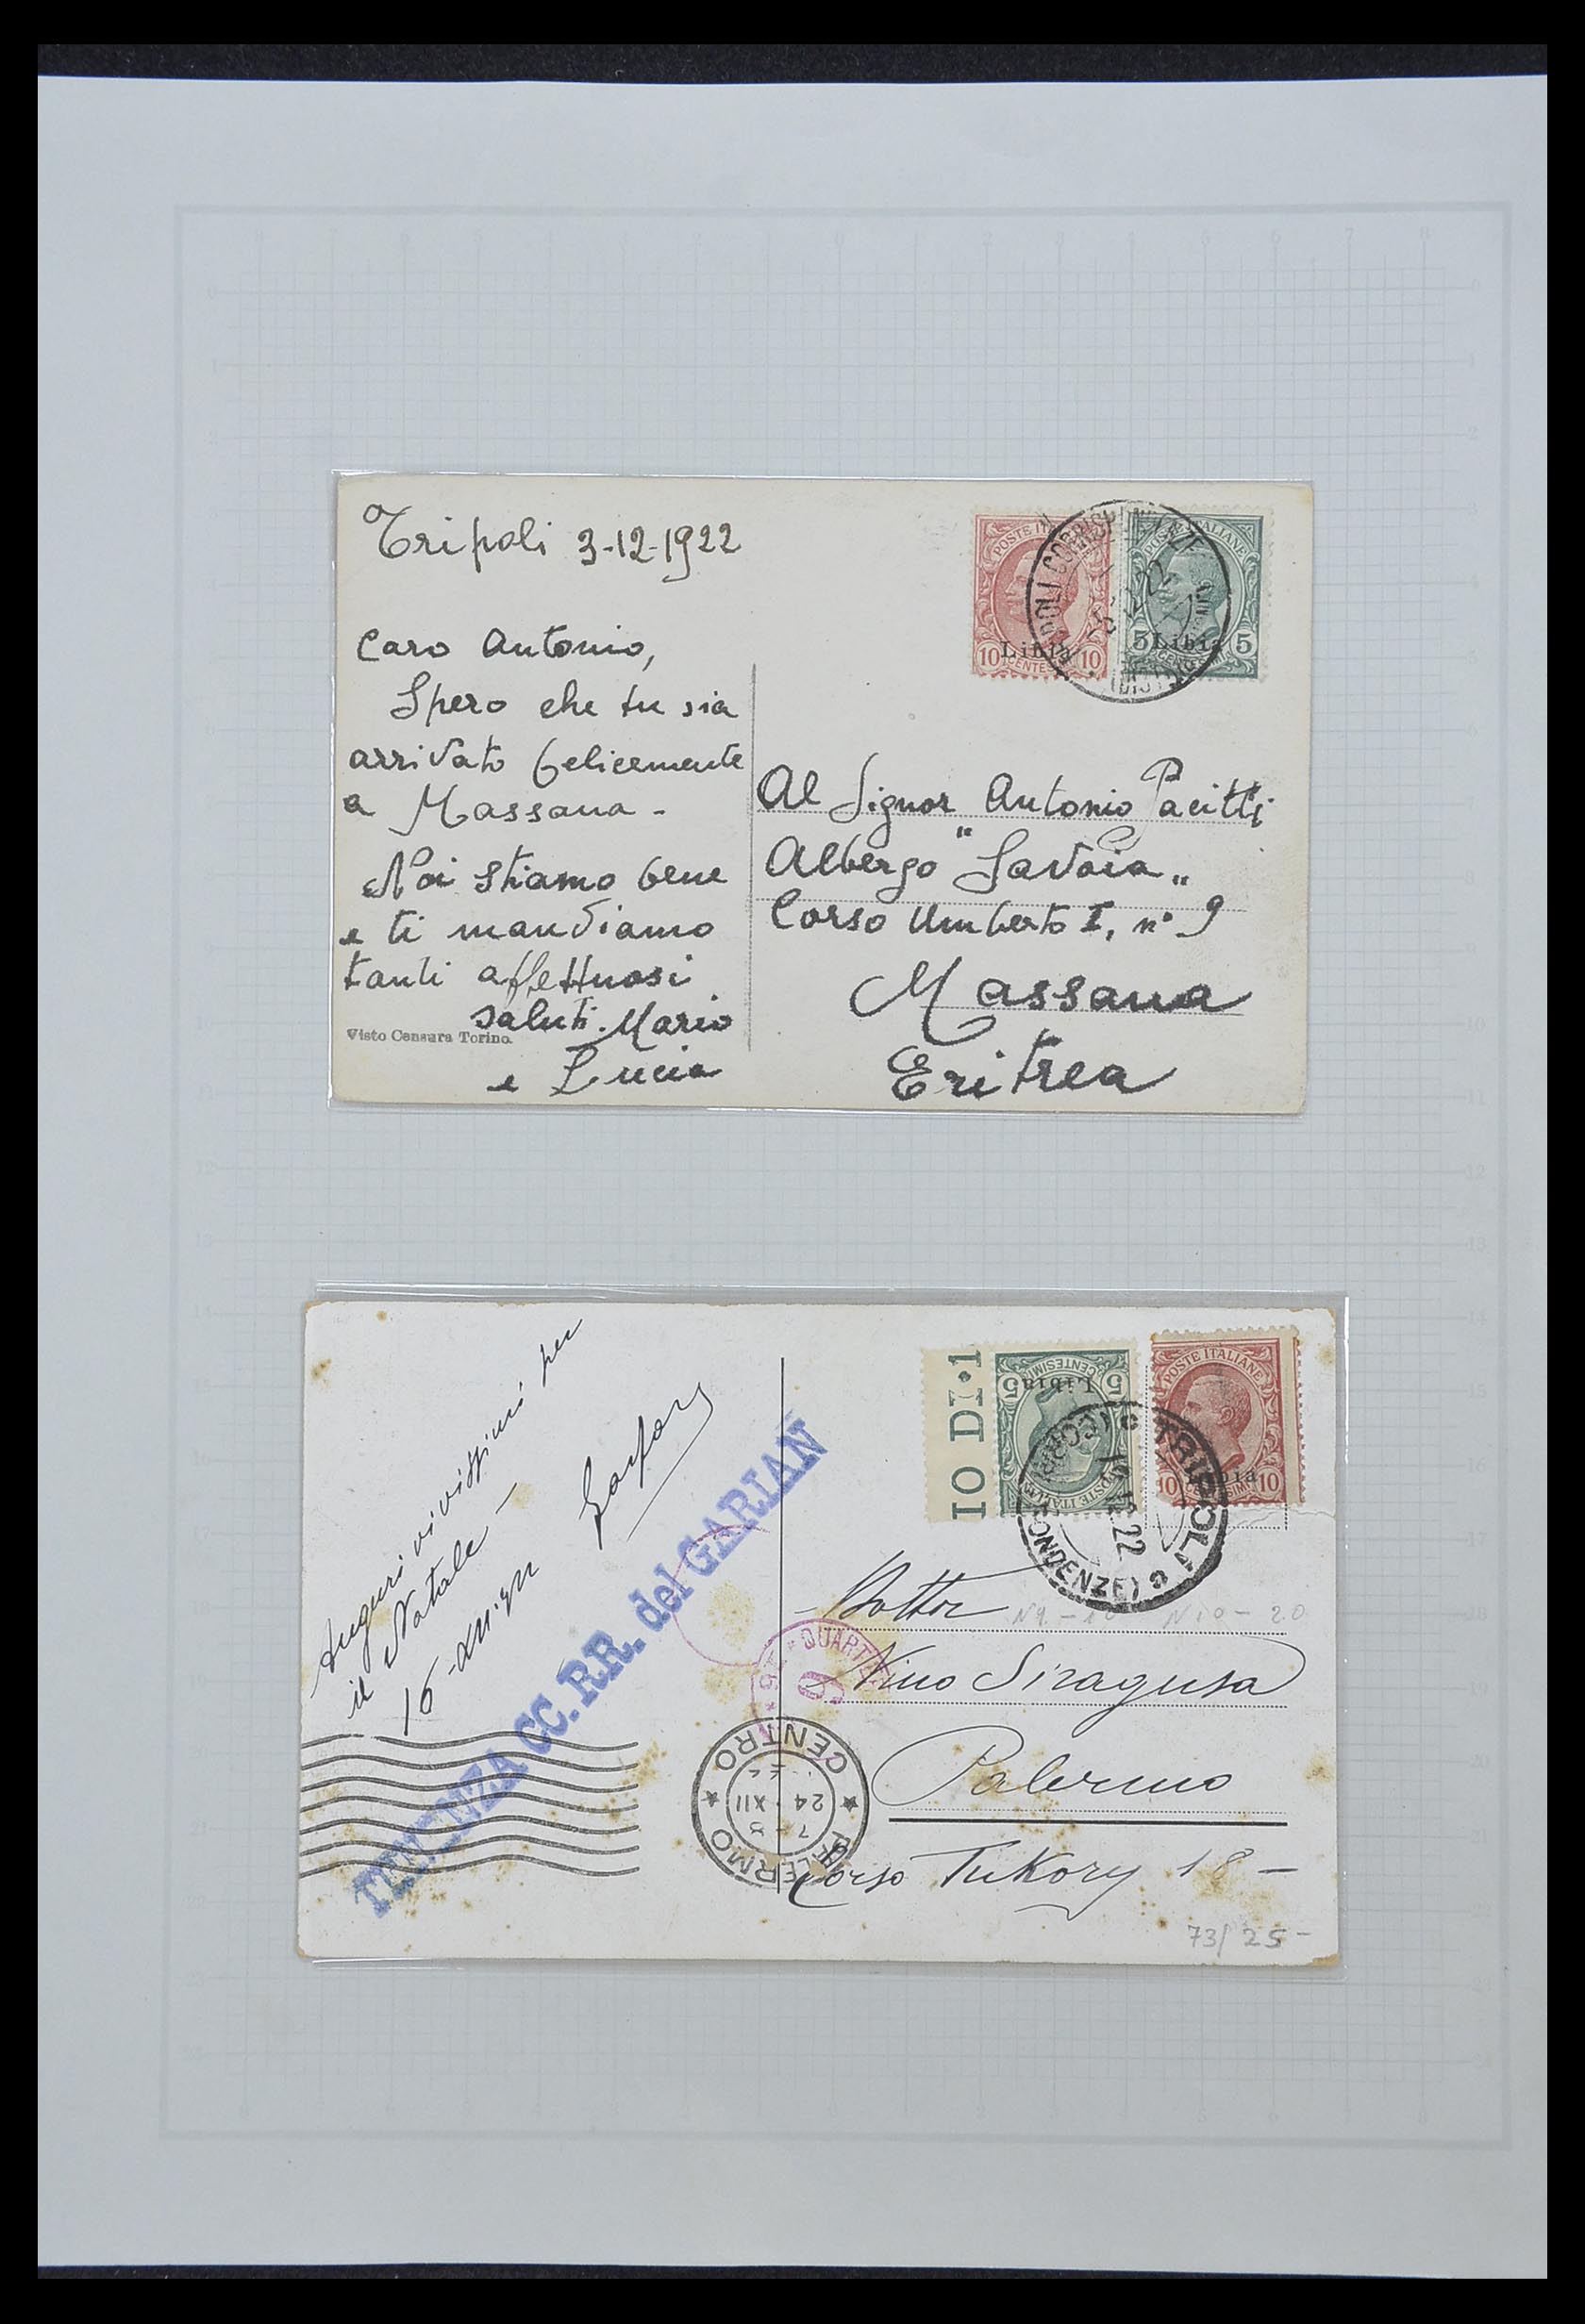 Tripoli 3-12-1922
Caro Antonio,
Spero che tu sia
arrivato felicemente
a Massaua -
Noi stiamo bene
e ti mandiamo
tanti affettuosi
saluti. Mario
e Lucia
Visto Censura Torino.
POSTE ITALIANE
Libia
10 CENTESIMI 10
POSTE ITALIANE
Libia
5 CENTESIMI 5
Al Signor Antonio Pacitti
Albergo "Savoia"
Corso Umberto I, n° 9
Massaua
Eritrea
Auguri vivissimi per
il Natale -
16-XII-922
TENENZA CC. RR. del GARIAN
IO DI·1
5 CENTESIMI 5
Libia
POSTE ITALIANE
POSTE ITALIANE
Libia
10 CENTESIMI 10
TRIPOLI
(CORRISPONDENZE)
19 12 22
Dottor
N9 - 10 N10 - 20
QUARTIERE
6
Nino Siragusa
Palermo
Corso Tukory 18 -
PALERMO
CENTRO
24 · XII
73/25 -